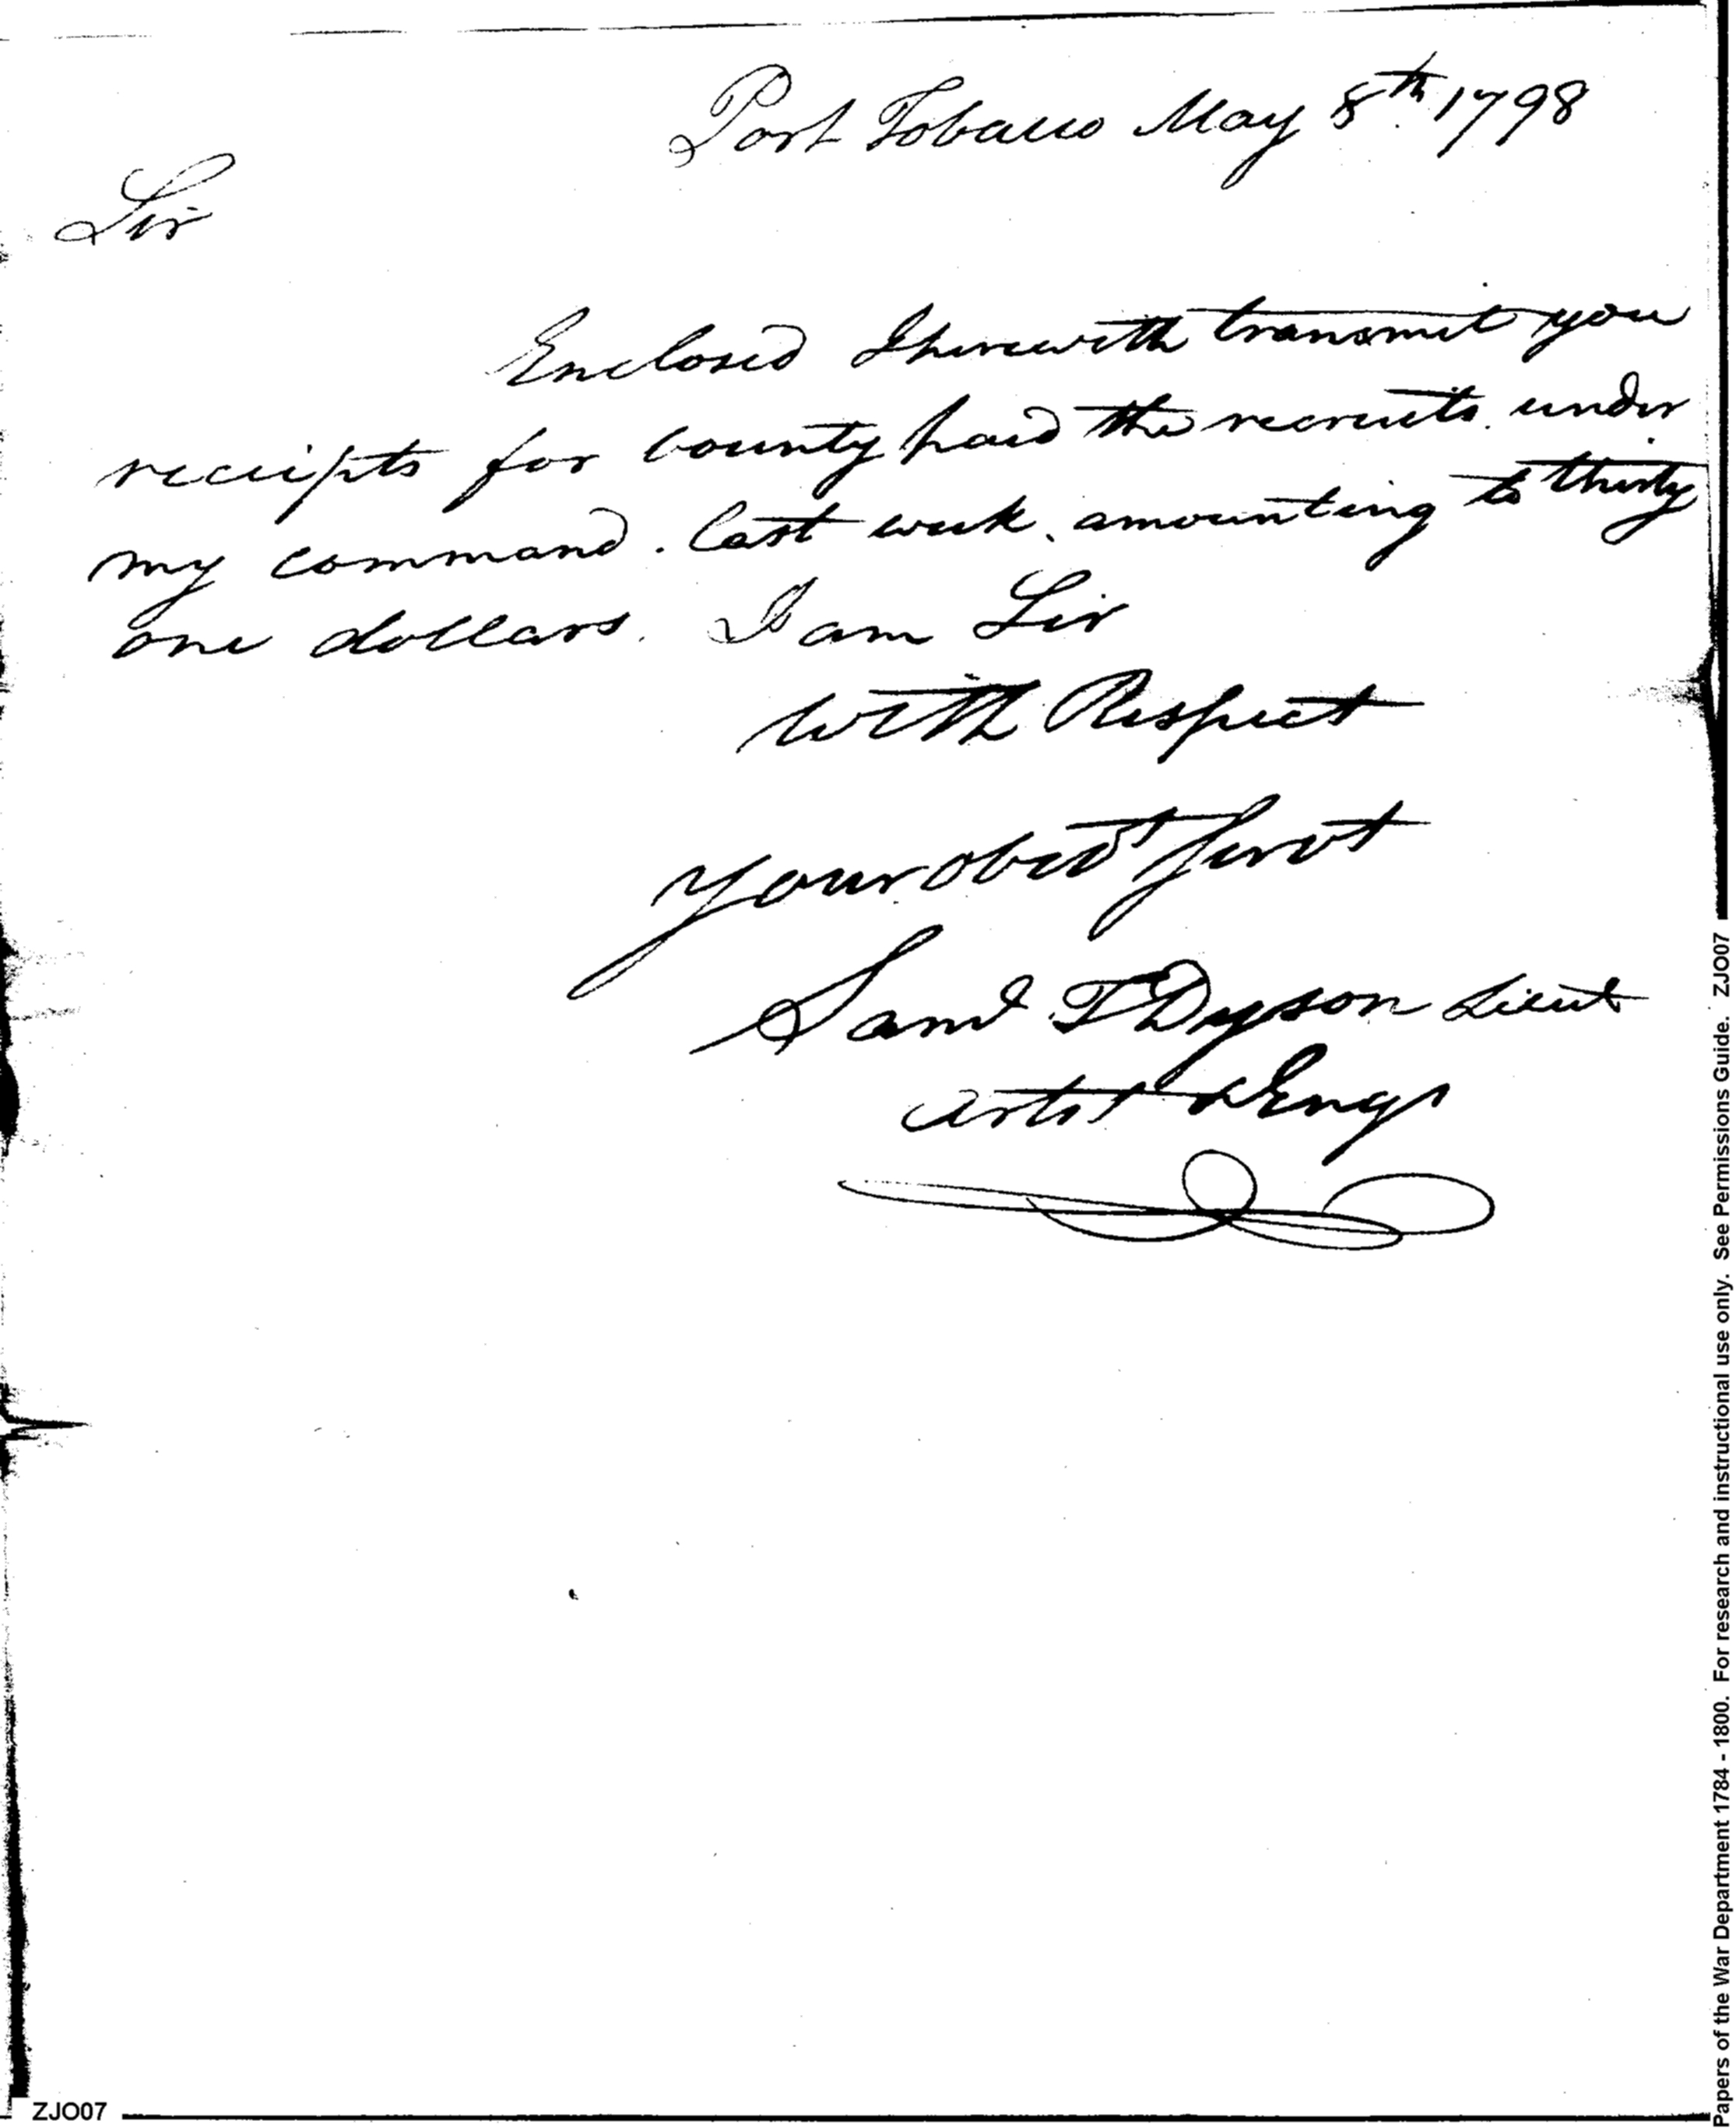 Port Tobacco May 8th 1798
Sir
Enclosed I herewith transmit you
receipts for bounty paid the recruits under
my command. last week, amounting to thirty
one dollars. I am Sir
with Respect
your obedt servt
Saml T Dyson Lieut
artist & Engs
ZJO07
Papers of the War Department 1784 - 1800. For research and instructional use only. See Permissions Guide. ZJO07